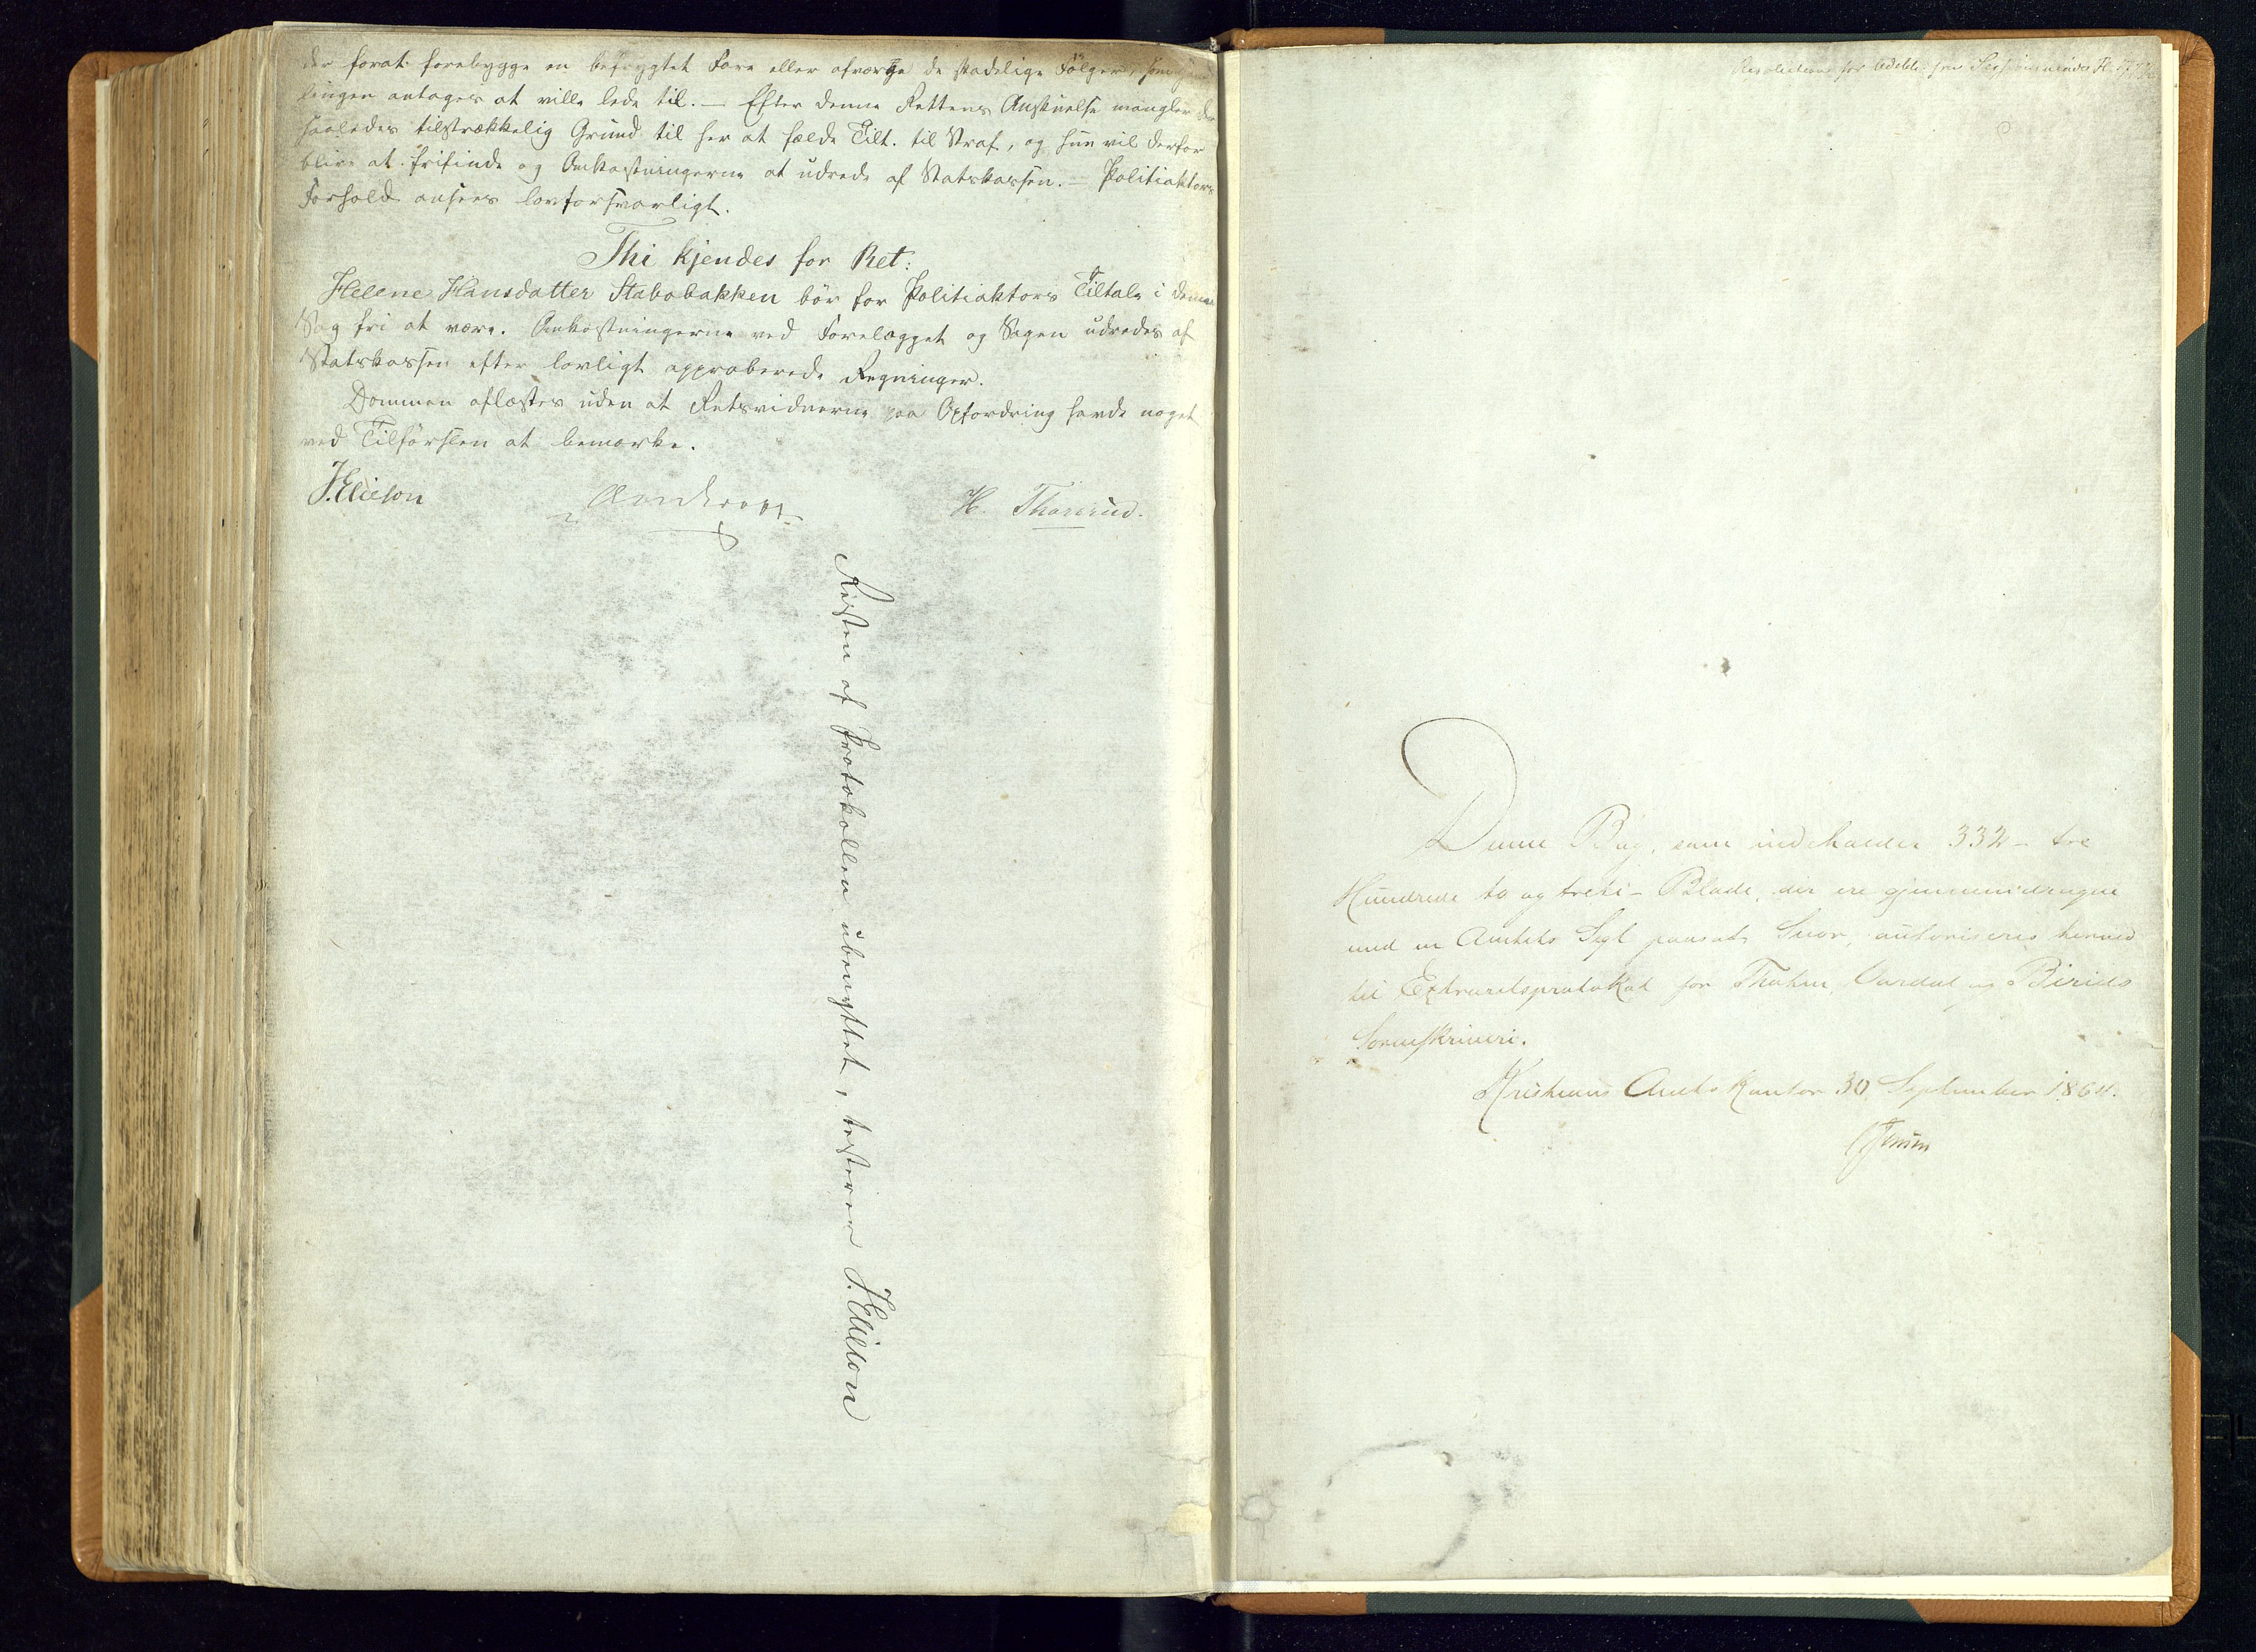 der forat forebygge en befrygtet Fare eller afværge de skadelige Følger, som
lingen antages at ville lede til. — Efter denne Rettens Anskuelse mangler der
saaledes tilstrækkelig Grund til her at fælde Tilt. til Straf, og hun vil derfor
blive at frifinde og Omkostningerne at udrede af Statskassen. — Politiaktors
Forhold ansees lovforsvarligt.
Thi kjendes for Ret:
Helene Hansdatter Stabobakken bör for Politiaktors Tiltale i denne
Sag fri at være. Omkostningerne ved Forelægget og Sagen udredes af
Statskassen efter lovligt approberede Regninger.
Dommen oplæstes uden at Retsvidnerne paa Opfordring havde noget
ved Tilførslen at bemærke.
J. Elieson
H. Thorsrud.
Resten af Protokollen ubenyttet, testerer J. Elieson
Resolutions for
Denne Bog, som indeholder 332 – tre
Hundrede to og treti – Blade, der ere gjennemdragne
med en Amtets Segl paasat Snor, autoriseres herved
til Extraretsprotokol for Thoten, Vardal og Birids
Sorenskriveri.
Kristians Amtskontor 30 September 1864.